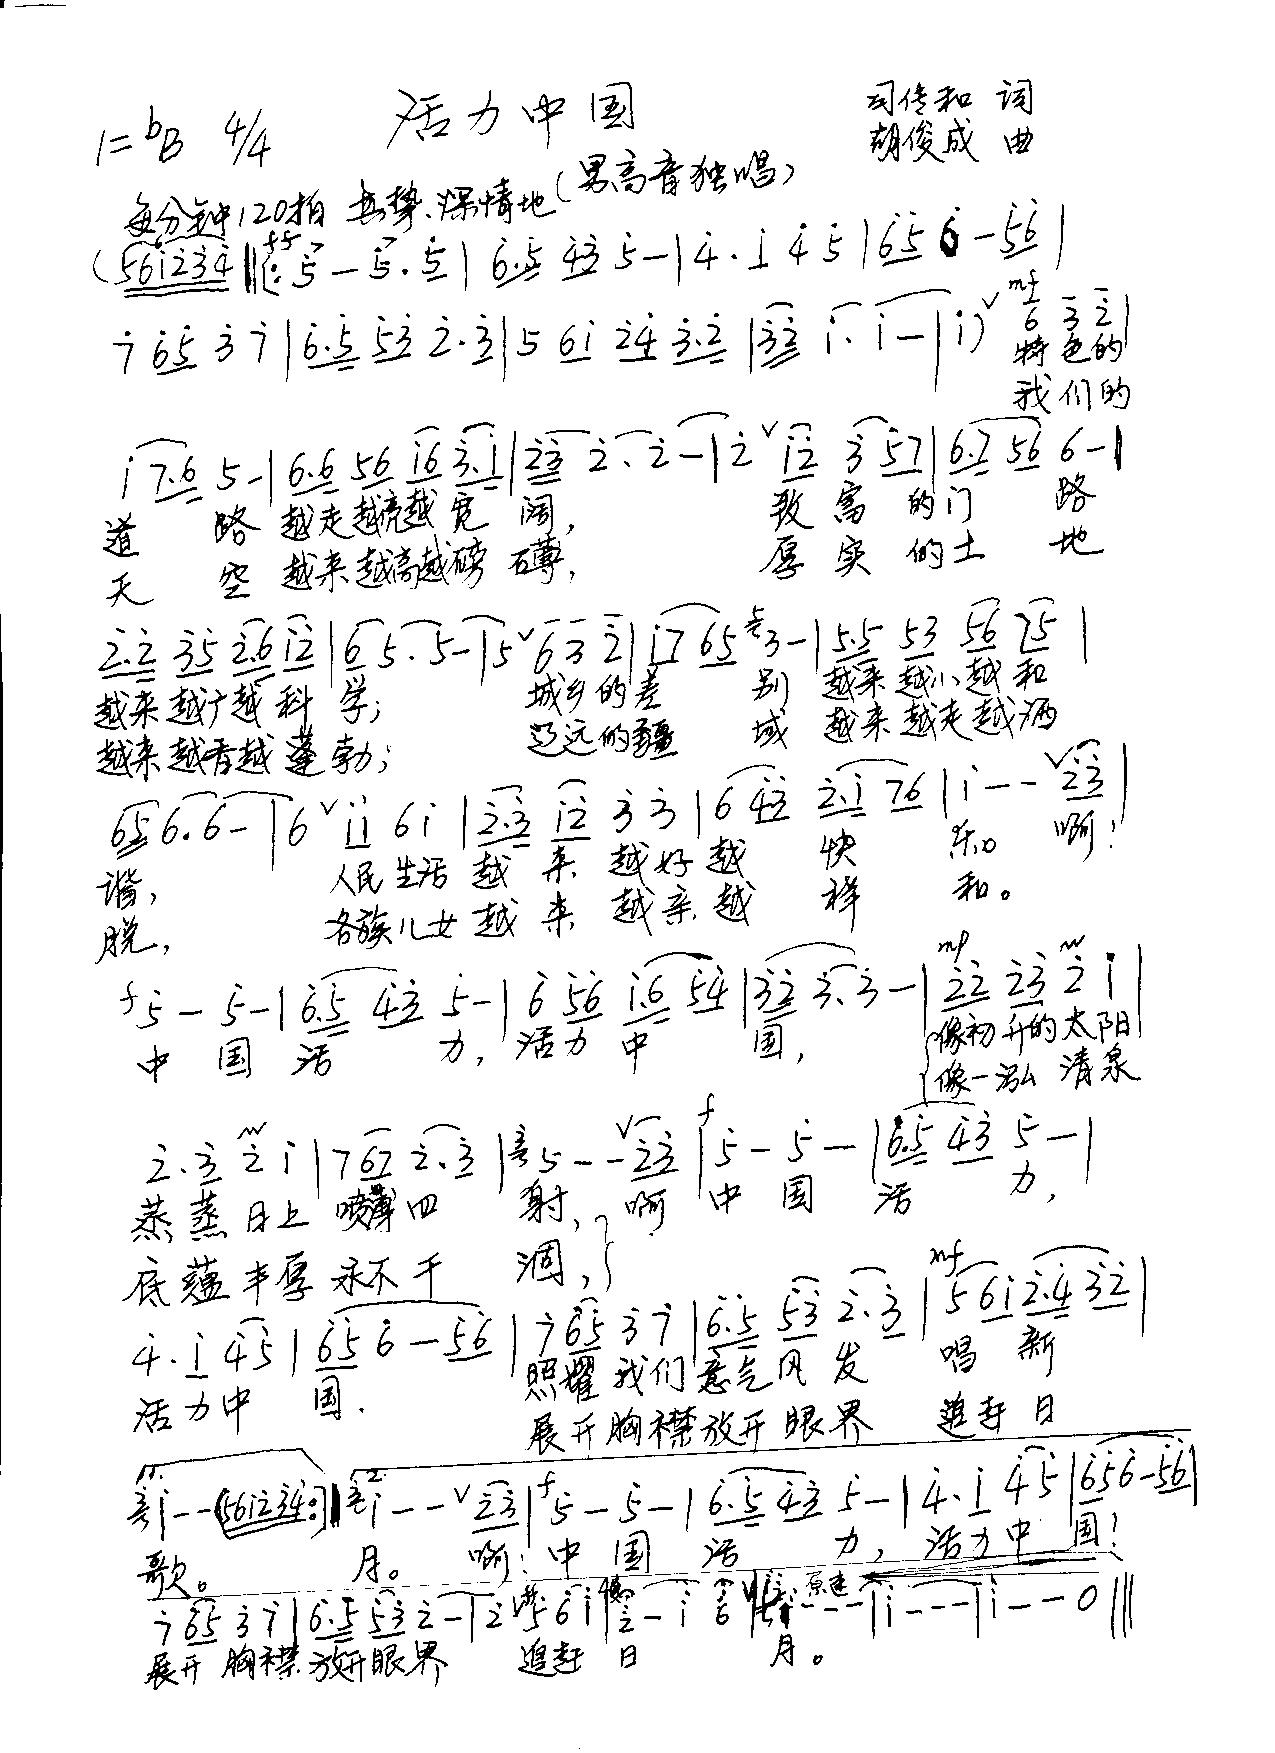 活力中国
司传和 词
1=bB 4/4
胡俊成 曲
(男高音独唱)
每分钟120拍 热势、深情地
(561234 ‖: 5 — 5 . 5 | 6.5 43 5 — | 4 . 1 4 5 | 65 6 — 56 |
7 65 3 7 | 6.5 53 2.3 | 5 61 24 3.2 | 32 1 . 1 — | 1) mf 6 3 2 |
特色的
我们的
1 7.6 5 — | 6.6 56 16 3.1 | 23 2 . 2 — | 2 12 3 57 | 6.7 56 6 — |
道 路 越走越亮越宽阔, 致富的门路
天 空 越来越高越磅礴, 厚实的土地
2.2 35 2.6 12 | 6 5 . 5 — | 5 6 3 2 | 17 65 3 — | 5.5 53 56 75 |
越来越广越科学; 城乡的差别 越来越小越和
越来越香越蓬勃; 辽远的疆域 越来越走越洒
65 6 . 6 — | 6 11 61 | 2.3 12 3 3 | 6 43 2.1 76 | 1 — — 23 |
谐, 人民生活越来越好越快乐。 啊!
脱, 各族儿女越来越亲越祥和。
f 5 — 5 — | 6.5 43 5 — | 6 56 1.6 54 | 32 3 . 3 — | mp 22 23 2 1 |
中国活力, 活力中国, 像初升的太阳
像一泓清泉
2.3 2 1 | 7 67 2.3 | 5 — — 23 | f 5 — 5 — | 6.5 43 5 — |
蒸蒸日上喷薄四射, 啊 中国活力,
底蕴丰厚永不干涸,
4 . 1 45 | 65 6 — 56 | 7 65 3 7 | 6.5 53 2.3 | mf 5 61 2.4 32 |
活力中国. 照耀我们意气风发 唱新
展开胸襟放开眼界 追赶日
1. 1 — — (561234 :‖ 2. 1 — — 23 | f 5 — 5 — | 6.5 43 5 — | 4 . 1 45 | 65 6 — 56 |
歌。 月。 啊! 中国活力, 活力中国!
7 65 3 7 | 6.5 53 2 — | 2 5 6 1 | 2 — 1 6 | 原速 1 — — — | 1 — — — | 1 — — 0 ‖
展开胸襟放开眼界 追赶日 月。